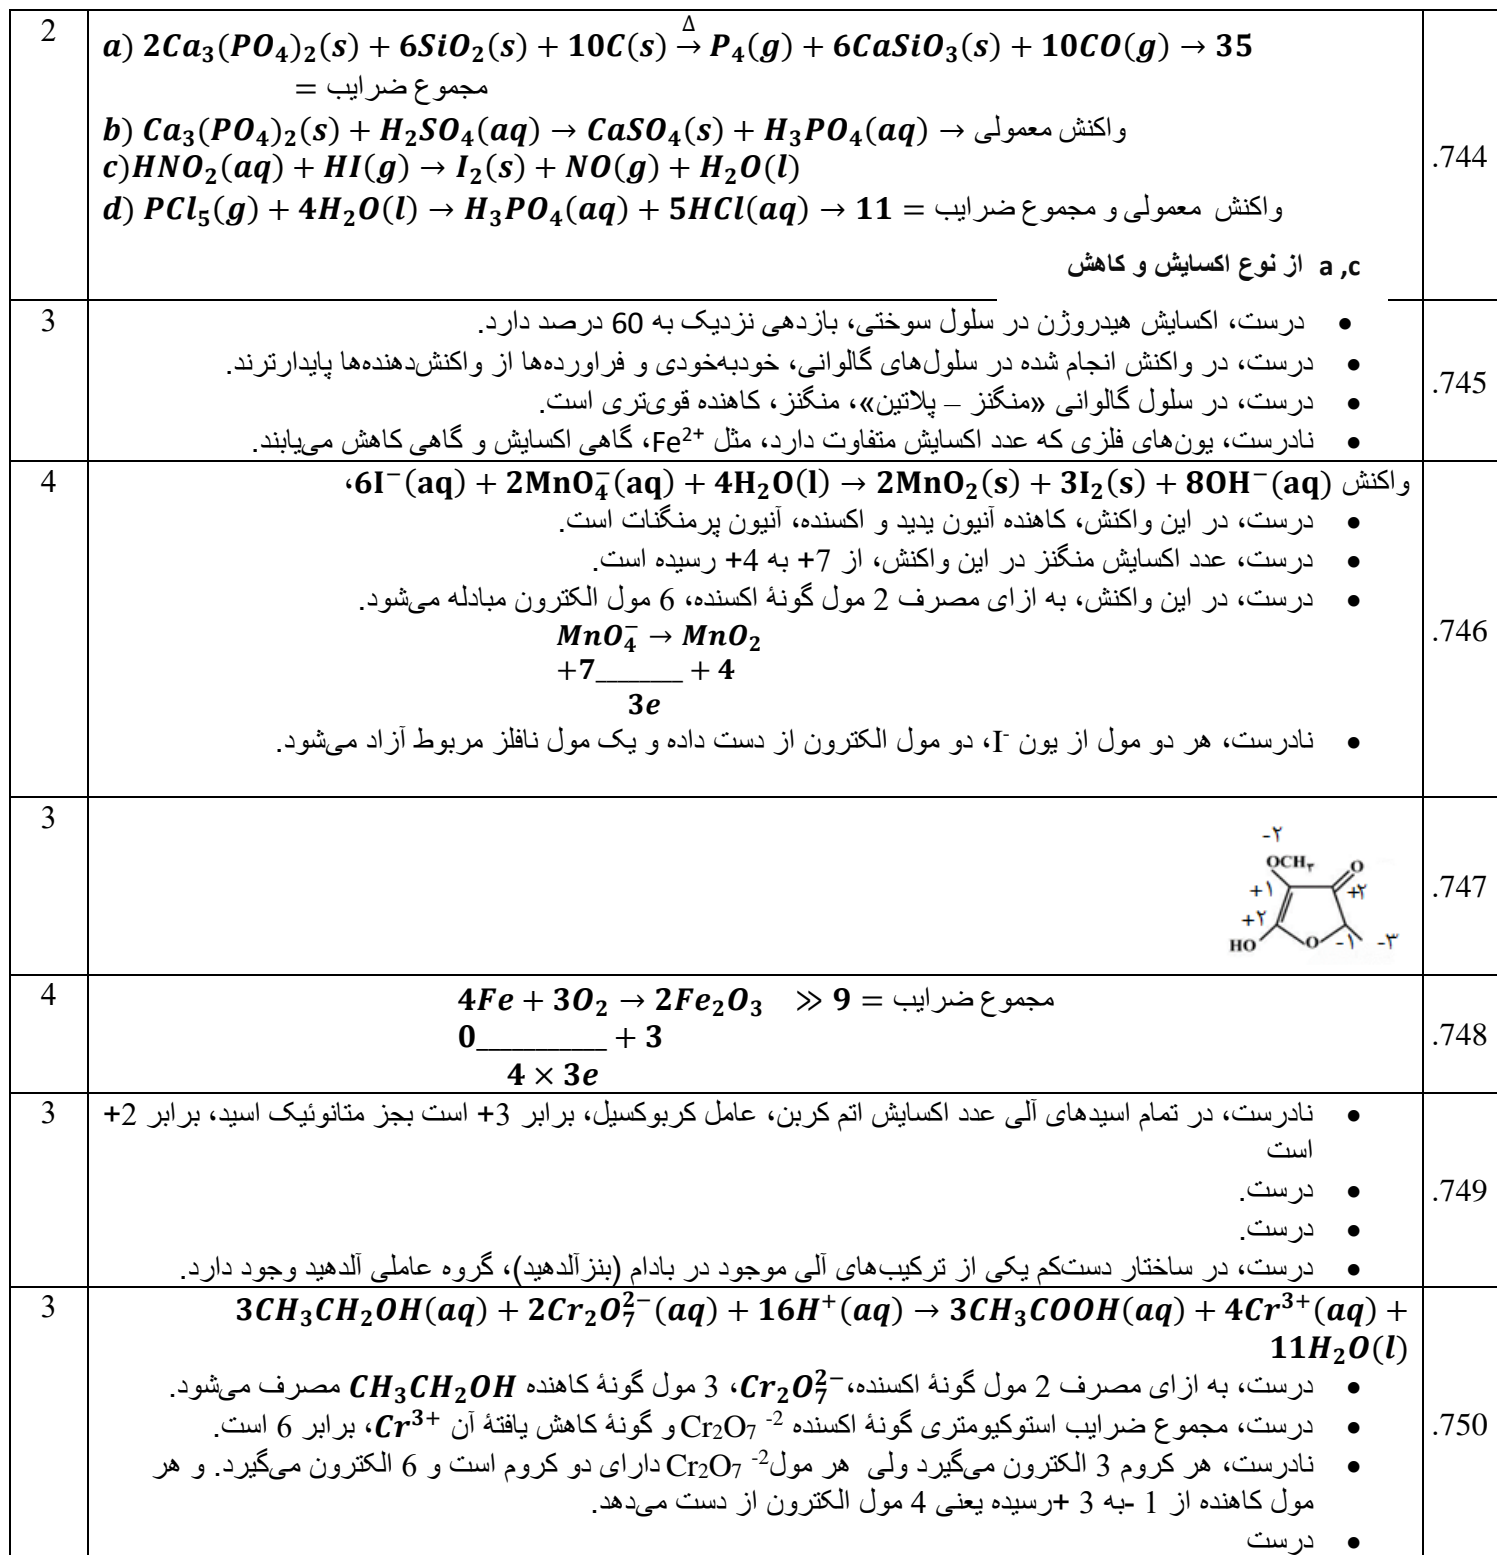 744.
2
a) 2Ca₃(PO₄)₂(s) + 6SiO₂(s) + 10C(s) →^Δ P₄(g) + 6CaSiO₃(s) + 10CO(g) → 35
مجموع ضرایب =
b) Ca₃(PO₄)₂(s) + H₂SO₄(aq) → CaSO₄(s) + H₃PO₄(aq) → واکنش معمولی
c)HNO₂(aq) + HI(g) → I₂(s) + NO(g) + H₂O(l)
d) PCl₅(g) + 4H₂O(l) → H₃PO₄(aq) + 5HCl(aq) → 11 = واکنش معمولی و مجموع ضرایب
a ,c از نوع اکسایش و کاهش
745.
3
• درست، اکسایش هیدروژن در سلول سوختی، بازدهی نزدیک به 60 درصد دارد.
• درست، در واکنش انجام شده در سلول‌های گالوانی، خودبه‌خودی و فراورده‌ها از واکنش‌دهنده‌ها پایدارترند.
• درست، در سلول گالوانی «منگنز – پلاتین»، منگنز، کاهنده قوی‌تری است.
• نادرست، یون‌های فلزی که عدد اکسایش متفاوت دارد، مثل Fe²⁺، گاهی اکسایش و گاهی کاهش می‌یابند.
746.
4
واکنش 6I⁻(aq) + 2MnO₄⁻(aq) + 4H₂O(l) → 2MnO₂(s) + 3I₂(s) + 8OH⁻(aq)،
• درست، در این واکنش، کاهنده آنیون یدید و اکسنده، آنیون پرمنگنات است.
• درست، عدد اکسایش منگنز در این واکنش، از 7+ به 4+ رسیده است.
• درست، در این واکنش، به ازای مصرف 2 مول گونهٔ اکسنده، 6 مول الکترون مبادله می‌شود.
MnO₄⁻ → MnO₂
+7________ + 4
3e
• نادرست، هر دو مول از یون I⁻، دو مول الکترون از دست داده و یک مول نافلز مربوط آزاد می‌شود.
747.
3
-۲
OCH₃ O
+۱ +۲
+۲
HO O -۱ -۳
748.
4
4Fe + 3O₂ → 2Fe₂O₃ ≫ 9 = مجموع ضرایب
0___________ + 3
4 × 3e
749.
3
• نادرست، در تمام اسیدهای آلی عدد اکسایش اتم کربن، عامل کربوکسیل، برابر 3+ است بجز متانوئیک اسید، برابر 2+
است
• درست.
• درست.
• درست، در ساختار دست‌کم یکی از ترکیب‌های آلی موجود در بادام (بنزآلدهید)، گروه عاملی آلدهید وجود دارد.
750.
3
3CH₃CH₂OH(aq) + 2Cr₂O₇²⁻(aq) + 16H⁺(aq) → 3CH₃COOH(aq) + 4Cr³⁺(aq) +
11H₂O(l)
• درست، به ازای مصرف 2 مول گونهٔ اکسنده،Cr₂O₇²⁻، 3 مول گونهٔ کاهنده CH₃CH₂OH مصرف می‌شود.
• درست، مجموع ضرایب استوکیومتری گونهٔ اکسنده Cr₂O₇ ²⁻ و گونهٔ کاهش یافتهٔ آن Cr³⁺، برابر 6 است.
• نادرست، هر کروم 3 الکترون می‌گیرد ولی هر مول Cr₂O₇ ²⁻ دارای دو کروم است و 6 الکترون می‌گیرد. و هر
مول کاهنده از 1 -به 3 +رسیده یعنی 4 مول الکترون از دست می‌دهد.
• درست